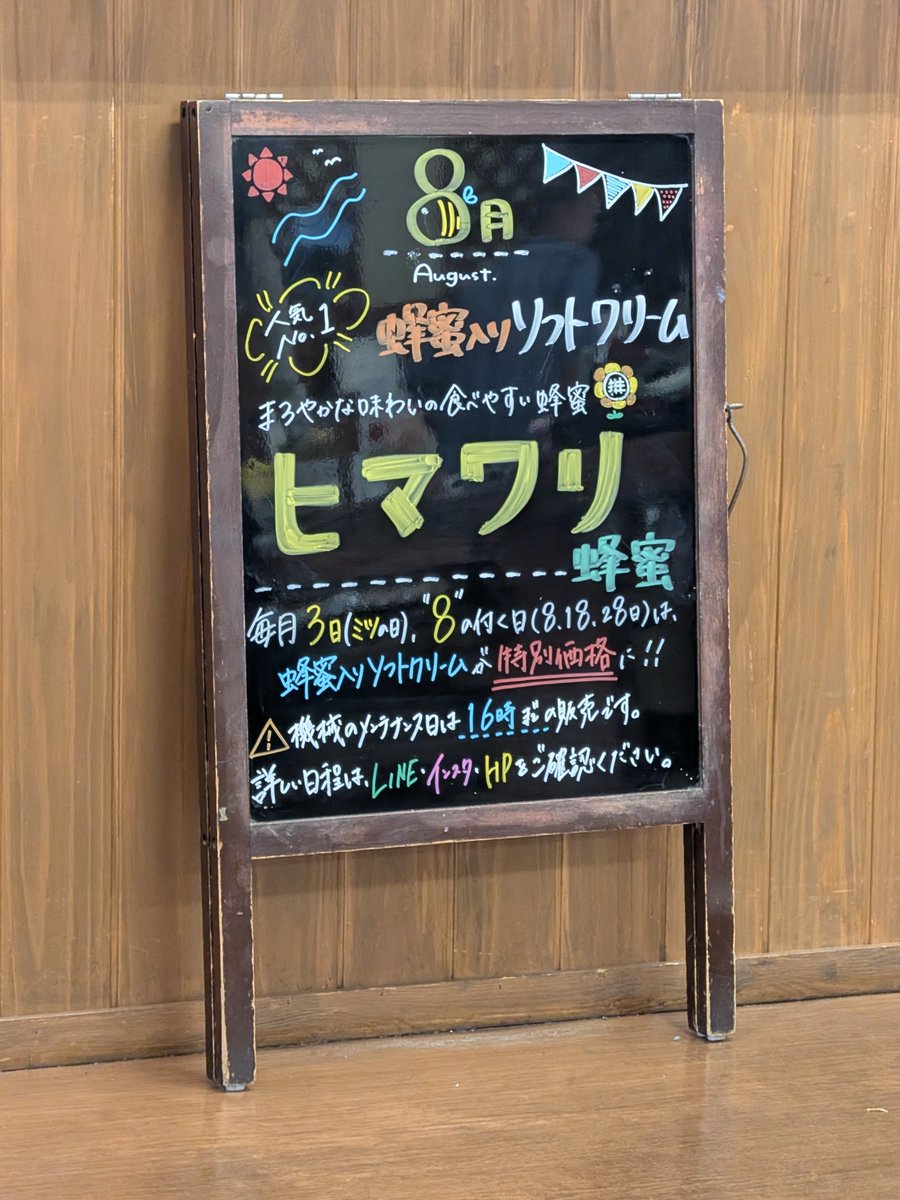 8月
August.
人気
No.1
蜂蜜入りソフトクリーム
まろやかな味わいの食べやすい蜂蜜
ヒマワリ
蜂蜜
毎月3日(ミツの日)、"8"の付く日(8.18.28日)は、
蜂蜜入りソフトクリームが特別価格に!!
機械のメンテナンス日は16時までの販売です。
詳しい日程は、LINE・インスタ・HPをご確認ください。